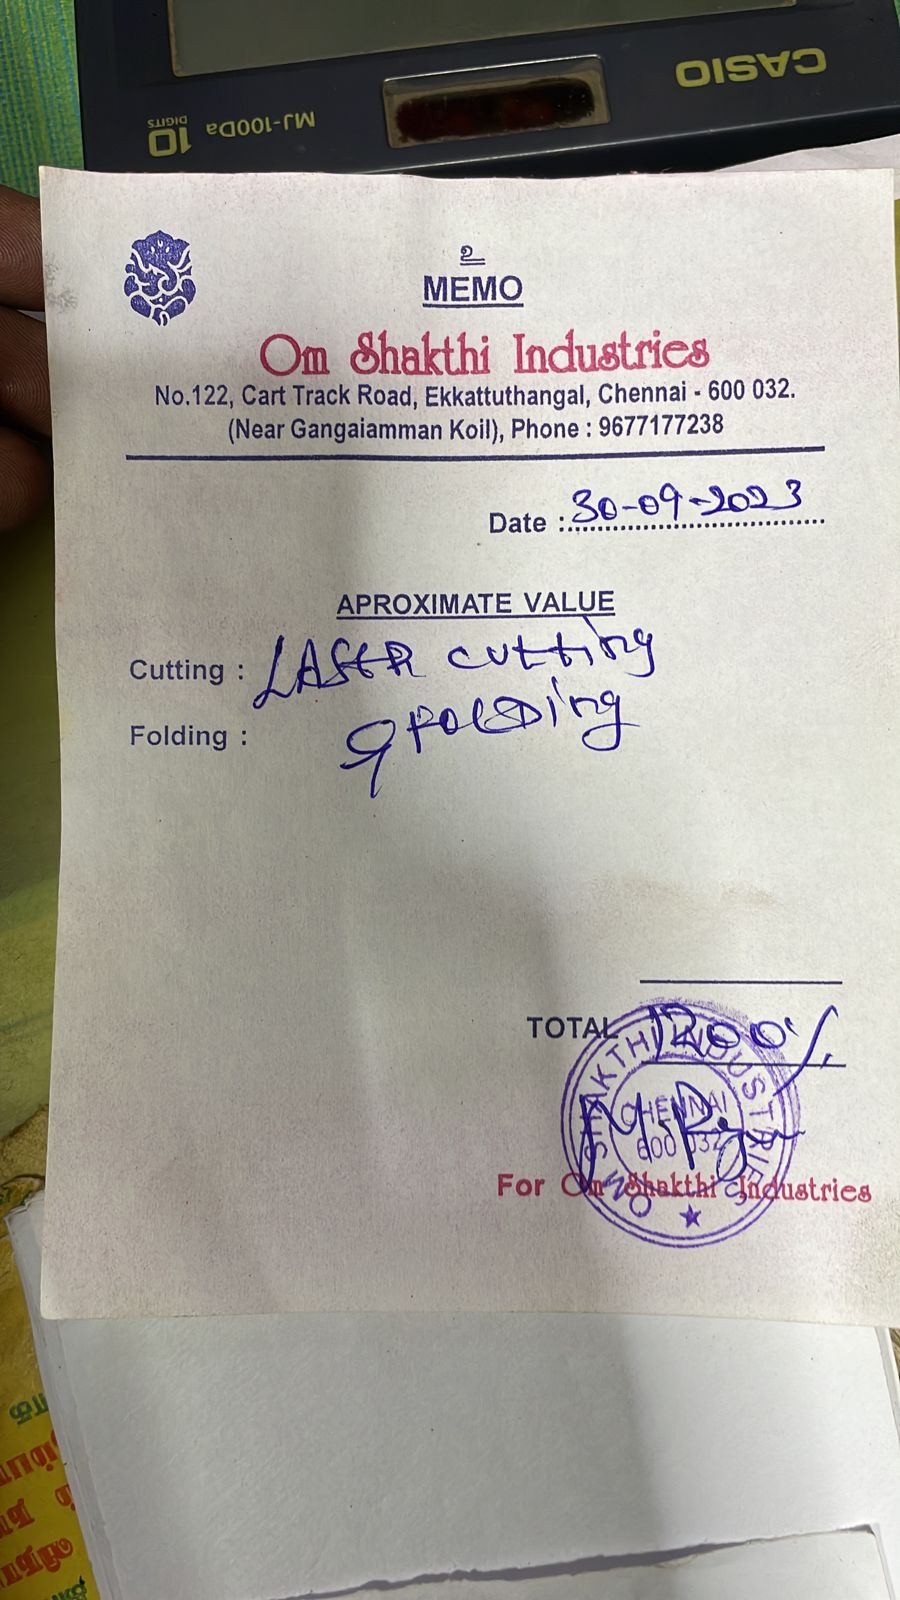 CASIO
MJ-100Da
10 DIGITS
உ
MEMO
Om Shakthi Industries
No.122, Cart Track Road, Ekkattuthangal, Chennai - 600 032.
(Near Gangaiamman Koil), Phone : 9677177238
Date : 30-09-2023
APROXIMATE VALUE
Cutting : LASER cutting
Folding : & FOLDing
TOTAL 1200/.
OM SHAKTHI INDUSTRIES
CHENNAI
600 032
For Om Shakthi Industries